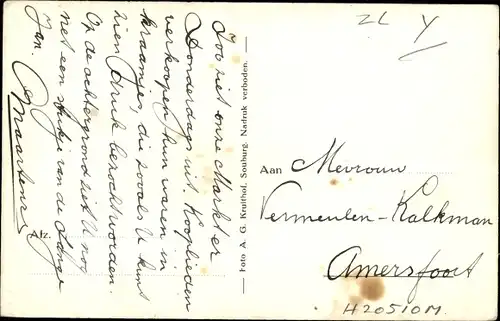 Zoo ziet onze Markt er
Donderdags uit. Kooplieden
verkoopen hun waren in
kraampjes, die zooals U kunt
zien druk bezocht worden.
Op de achtergrond ziet U nog
net een stukje van de Lange
Jan.
Maartens
Afz.
— Foto A. G. Kruithof, Souburg. Nadruk verboden. —
ZL Y
Aan Mevrouw
Vermeulen-Kalkman
Amersfoort
H20510M.